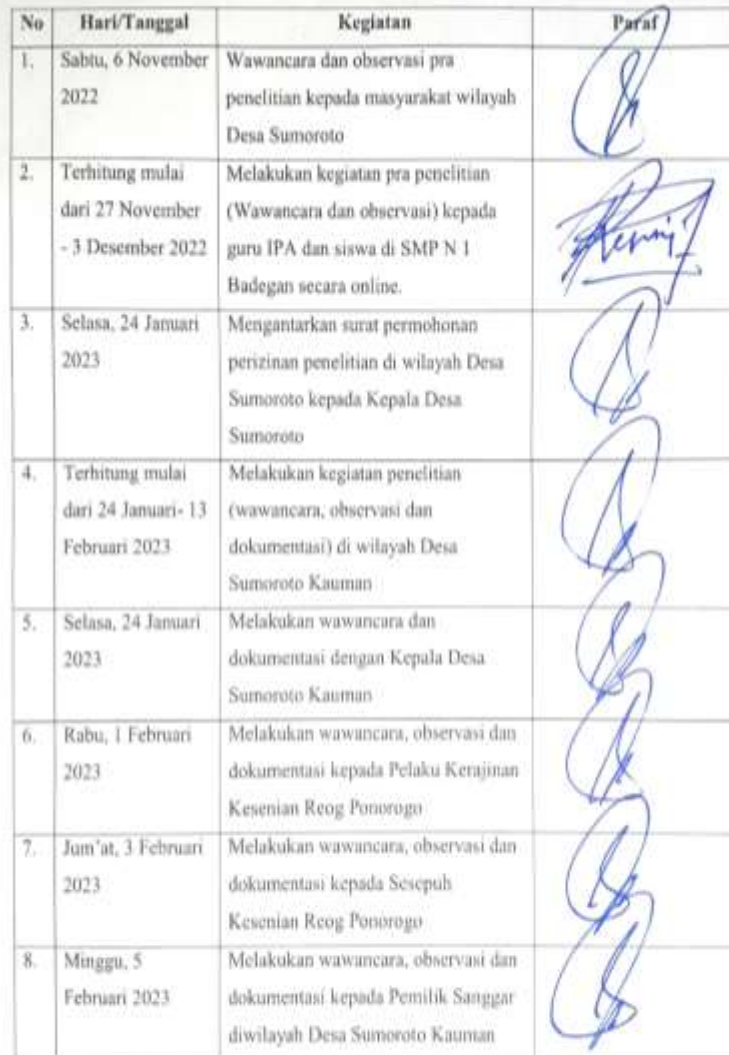 No Hari/Tanggal Kegiatan Paraf
1. Sabtu, 6 November Wawancara dan observasi pra
2022 penelitian kepada masyarakat wilayah
Desa Sumoroto
2. Terhitung mulai Melakukan kegiatan pra penelitian
dari 27 November (Wawancara dan observasi) kepada
- 3 Desember 2022 guru IPA dan siswa di SMP N 1
Badegan secara online.
3. Selasa, 24 Januari Mengantarkan surat permohonan
2023 perizinan penelitian di wilayah Desa
Sumoroto kepada Kepala Desa
Sumoroto
4. Terhitung mulai Melakukan kegiatan penelitian
dari 24 Januari- 13 (wawancara, observasi dan
Februari 2023 dokumentasi) di wilayah Desa
Sumoroto Kauman
5. Selasa, 24 Januari Melakukan wawancara dan
2023 dokumentasi dengan Kepala Desa
Sumoroto Kauman
6. Rabu, 1 Februari Melakukan wawancara, observasi dan
2023 dokumentasi kepada Pelaku Kerajinan
Kesenian Reog Ponorogo
7. Jum'at, 3 Februari Melakukan wawancara, observasi dan
2023 dokumentasi kepada Sesepuh
Kesenian Reog Ponorogo
8. Minggu, 5 Melakukan wawancara, observasi dan
Februari 2023 dokumentasi kepada Pemilik Sanggar
diwilayah Desa Sumoroto Kauman